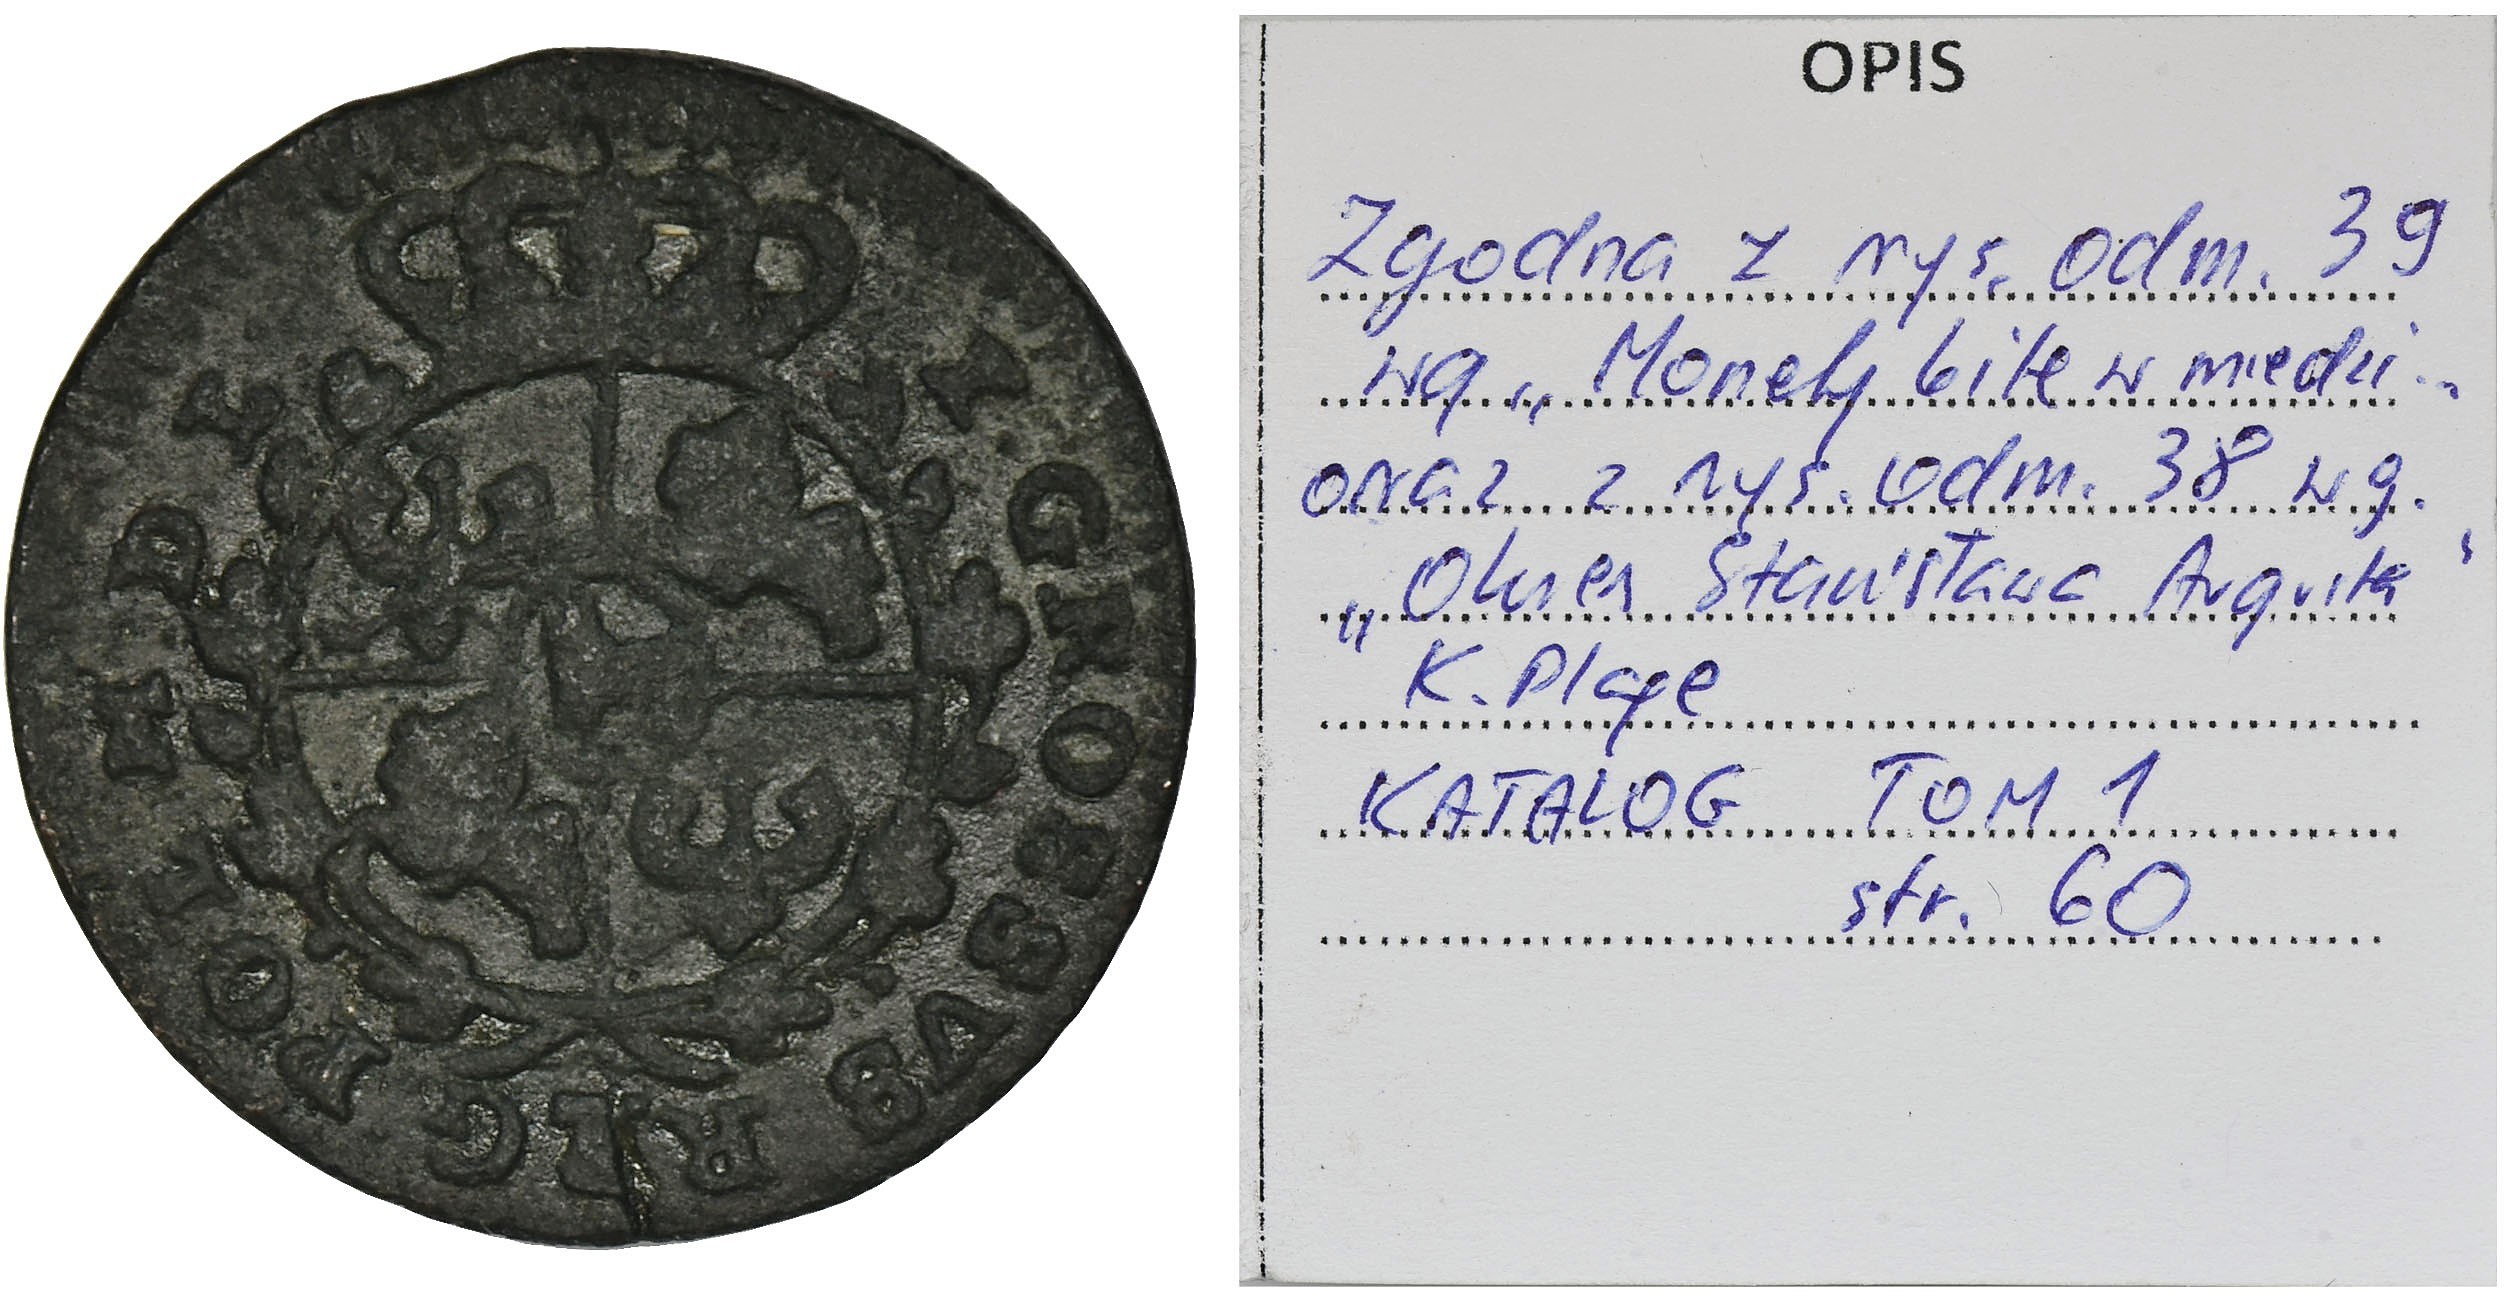 I. GROSSVS
REG. POL. M.D.L.
OPIS
Zgodna z rys. odm. 39
wg „Monety bite w miedzi..
oraz z rys. odm. 38 wg.
„Okres Stanisława Augusta"
K. Plage
KATALOG TOM 1
str. 60